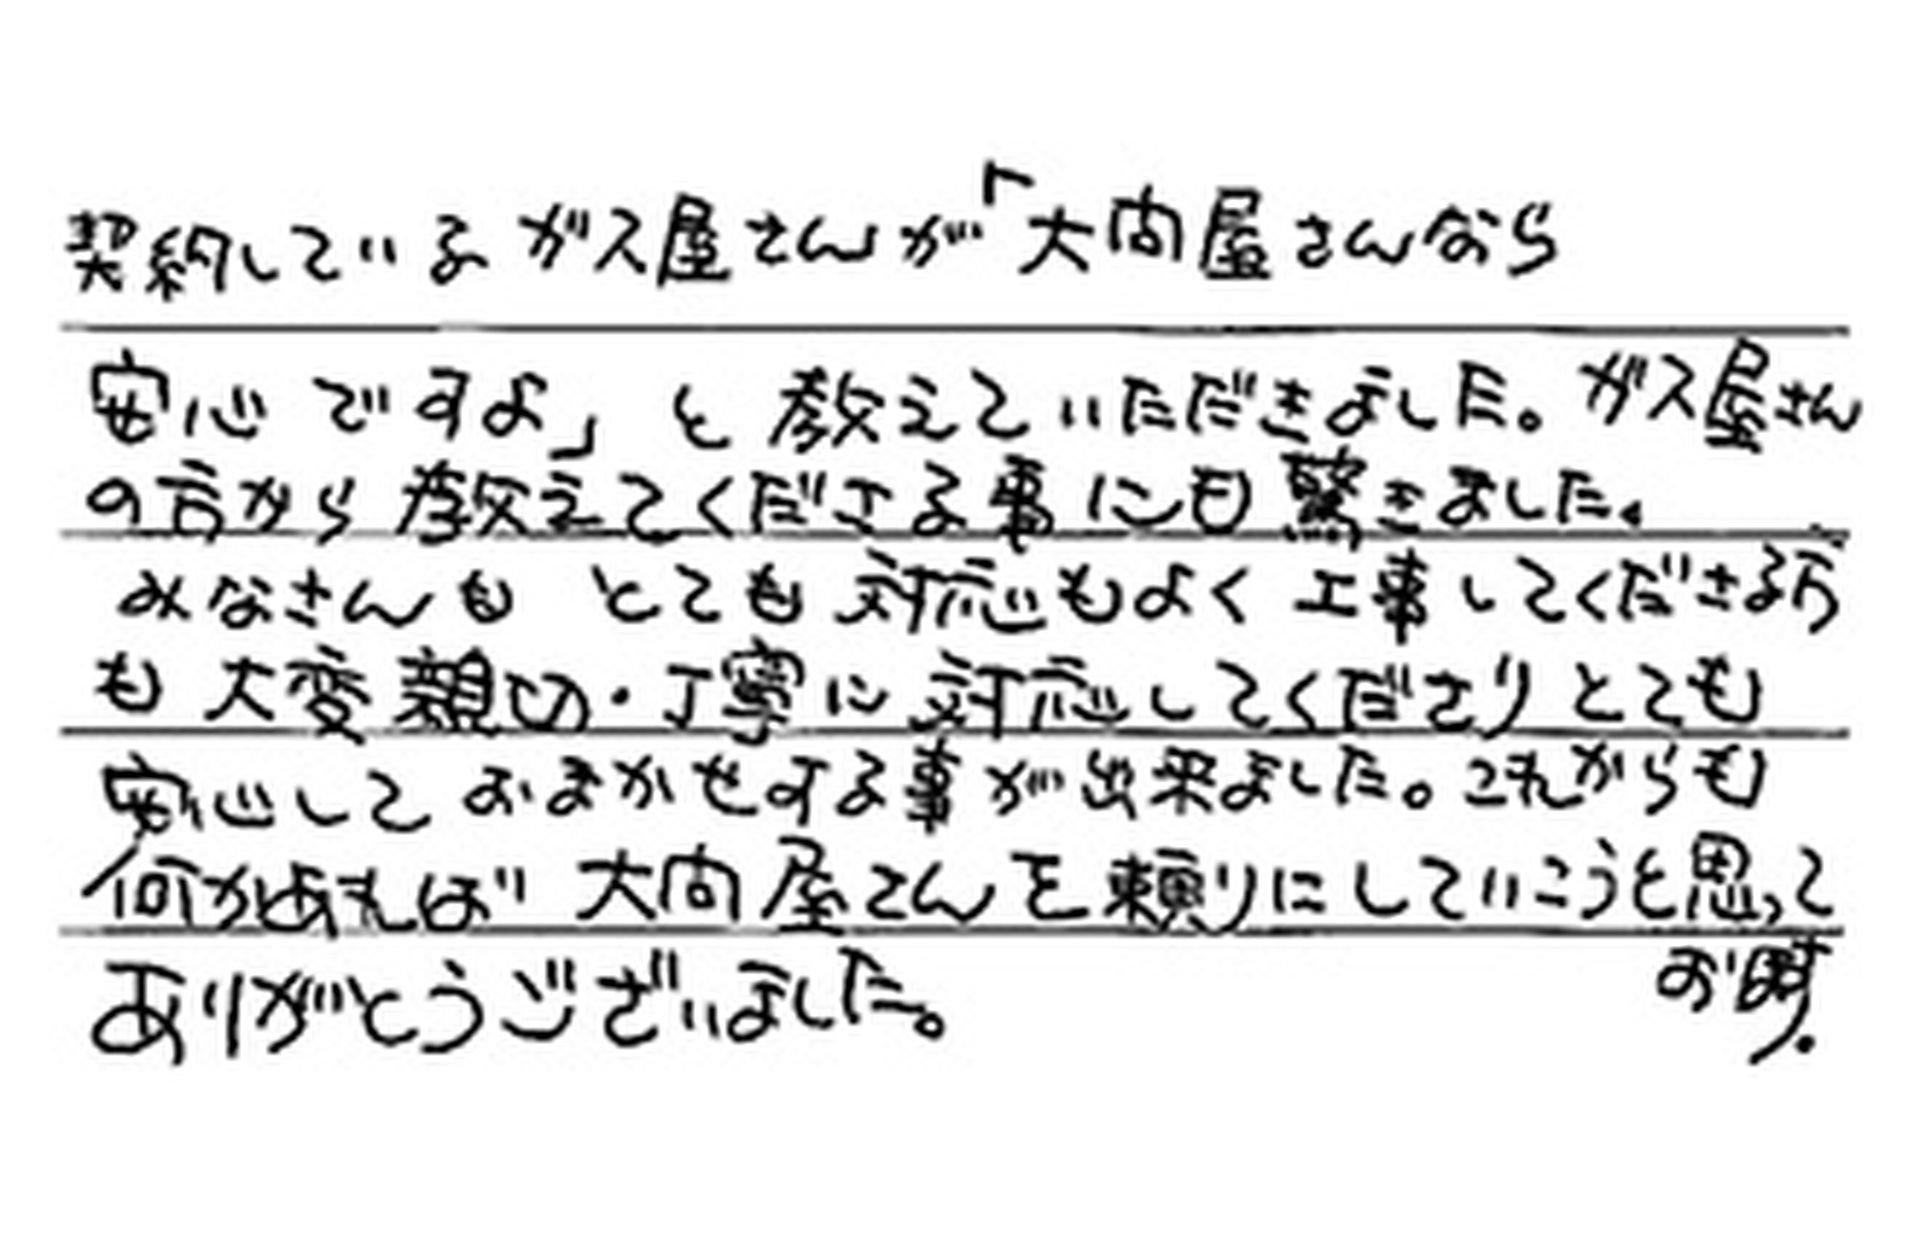 契約しているガス屋さんが「大向屋さんなら
安心ですよ」と教えていただきました。ガス屋さん
の方から教えてくださる事にも驚きました。
みなさんもとても対応もよく工事してくださる方
も大変親切・丁寧に対応してくださりとても
安心しておまかせする事が出来ました。これからも
何かあれば大向屋さんを頼りにしていこうと思って
おります。
ありがとうございました。